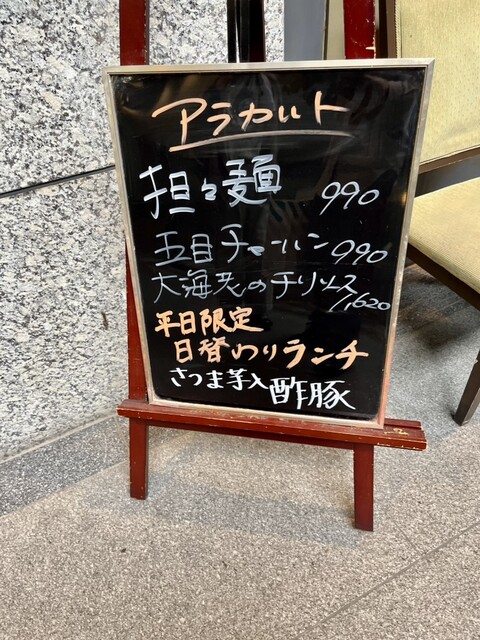 アラカルト
担々麺 990
五目チャーハン 990
大海老のチリソース 1,620
平日限定
日替わりランチ
さつま芋入酢豚